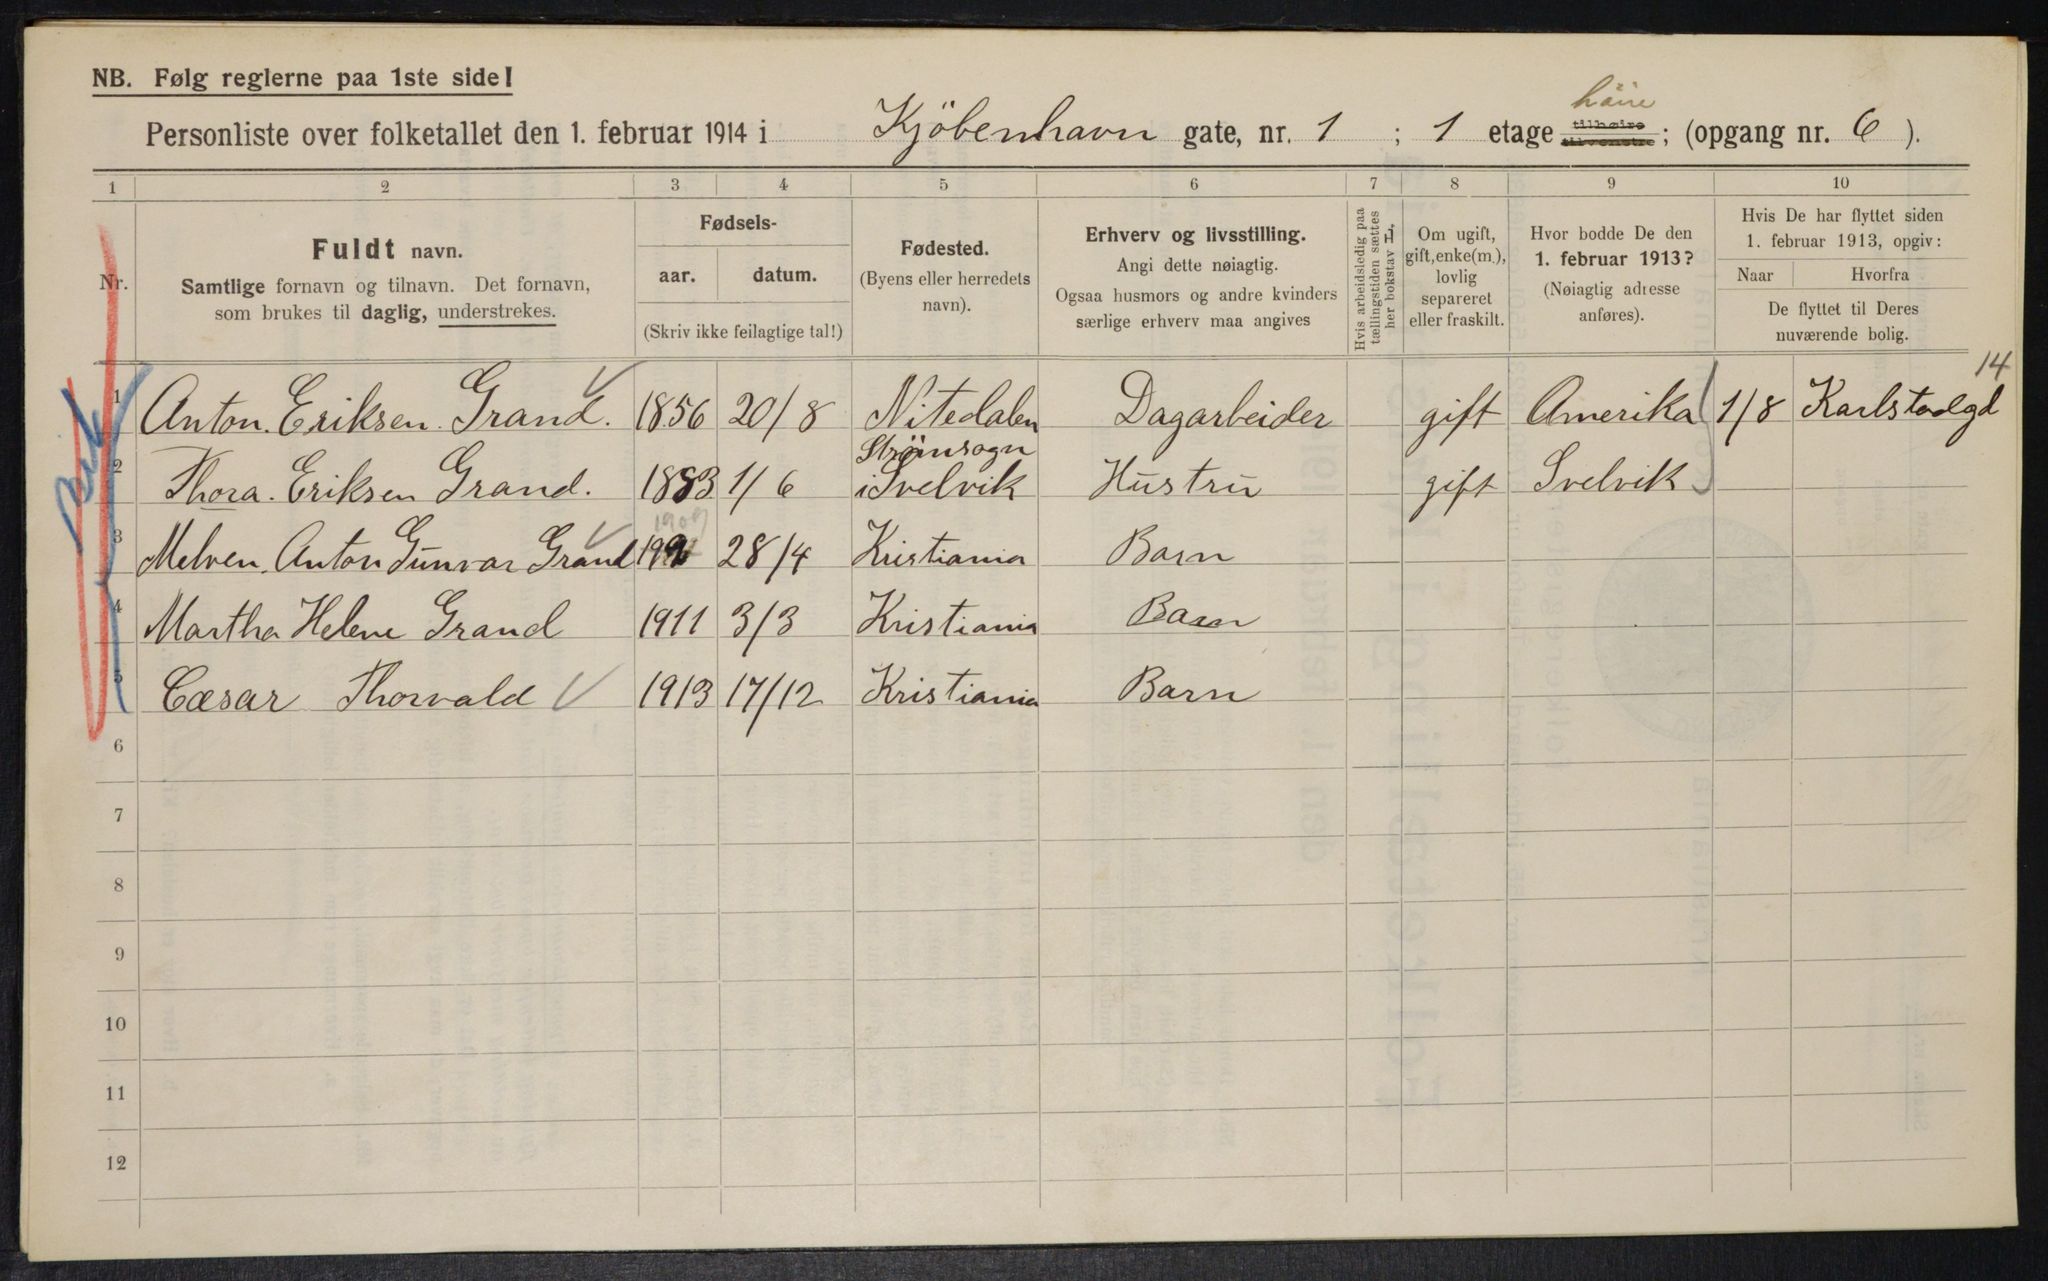 NB. Følg reglerne paa 1ste side!
Personliste over folketallet den 1. februar 1914 i Kjöbenhavn gate, nr. 1 ; 1 etage tilhøire tilvenstre høire ; (opgang nr. 6 ).
1 2 3 4 5 6 7 8 9 10
Nr.
Fuldt navn.
Samtlige fornavn og tilnavn. Det fornavn,
som brukes til daglig, understrekes.
Fødsels-
aar. datum.
(Skriv ikke feilagtige tal!)
Fødested.
(Byens eller herredets
navn).
Erhverv og livsstilling.
Angi dette nøiagtig.
Ogsaa husmors og andre kvinders
særlige erhverv maa angives
Hvis arbeidsledig paa
tællingstiden sættes
her bokstav L.
Om ugift,
gift, enke(m.),
lovlig
separeret
eller fraskilt.
Hvor bodde De den
1. februar 1913?
(Nøiagtig adresse
anføres).
Hvis De har flyttet siden
1. februar 1913, opgiv:
Naar Hvorfra
De flyttet til Deres
nuværende bolig.
1 Anton. Eriksen. Grand. 1856 20/8 Nitedalen Dagarbeider gift Amerika 1/8 Karlstadgd 14
2 Thora. Eriksen Grand. 1883 1/6 Strömsogn i Svelvik Hustru gift Svelvik
1909
3 Melven. Anton Gunvar Grand 28/4 Kristiania Barn
4 Martha Helene Grand 1911 3/3 Kristiania Barn
5 Cæsar Thorvald 1913 17/12 Kristiania Barn
6
7
8
9
10
11
12